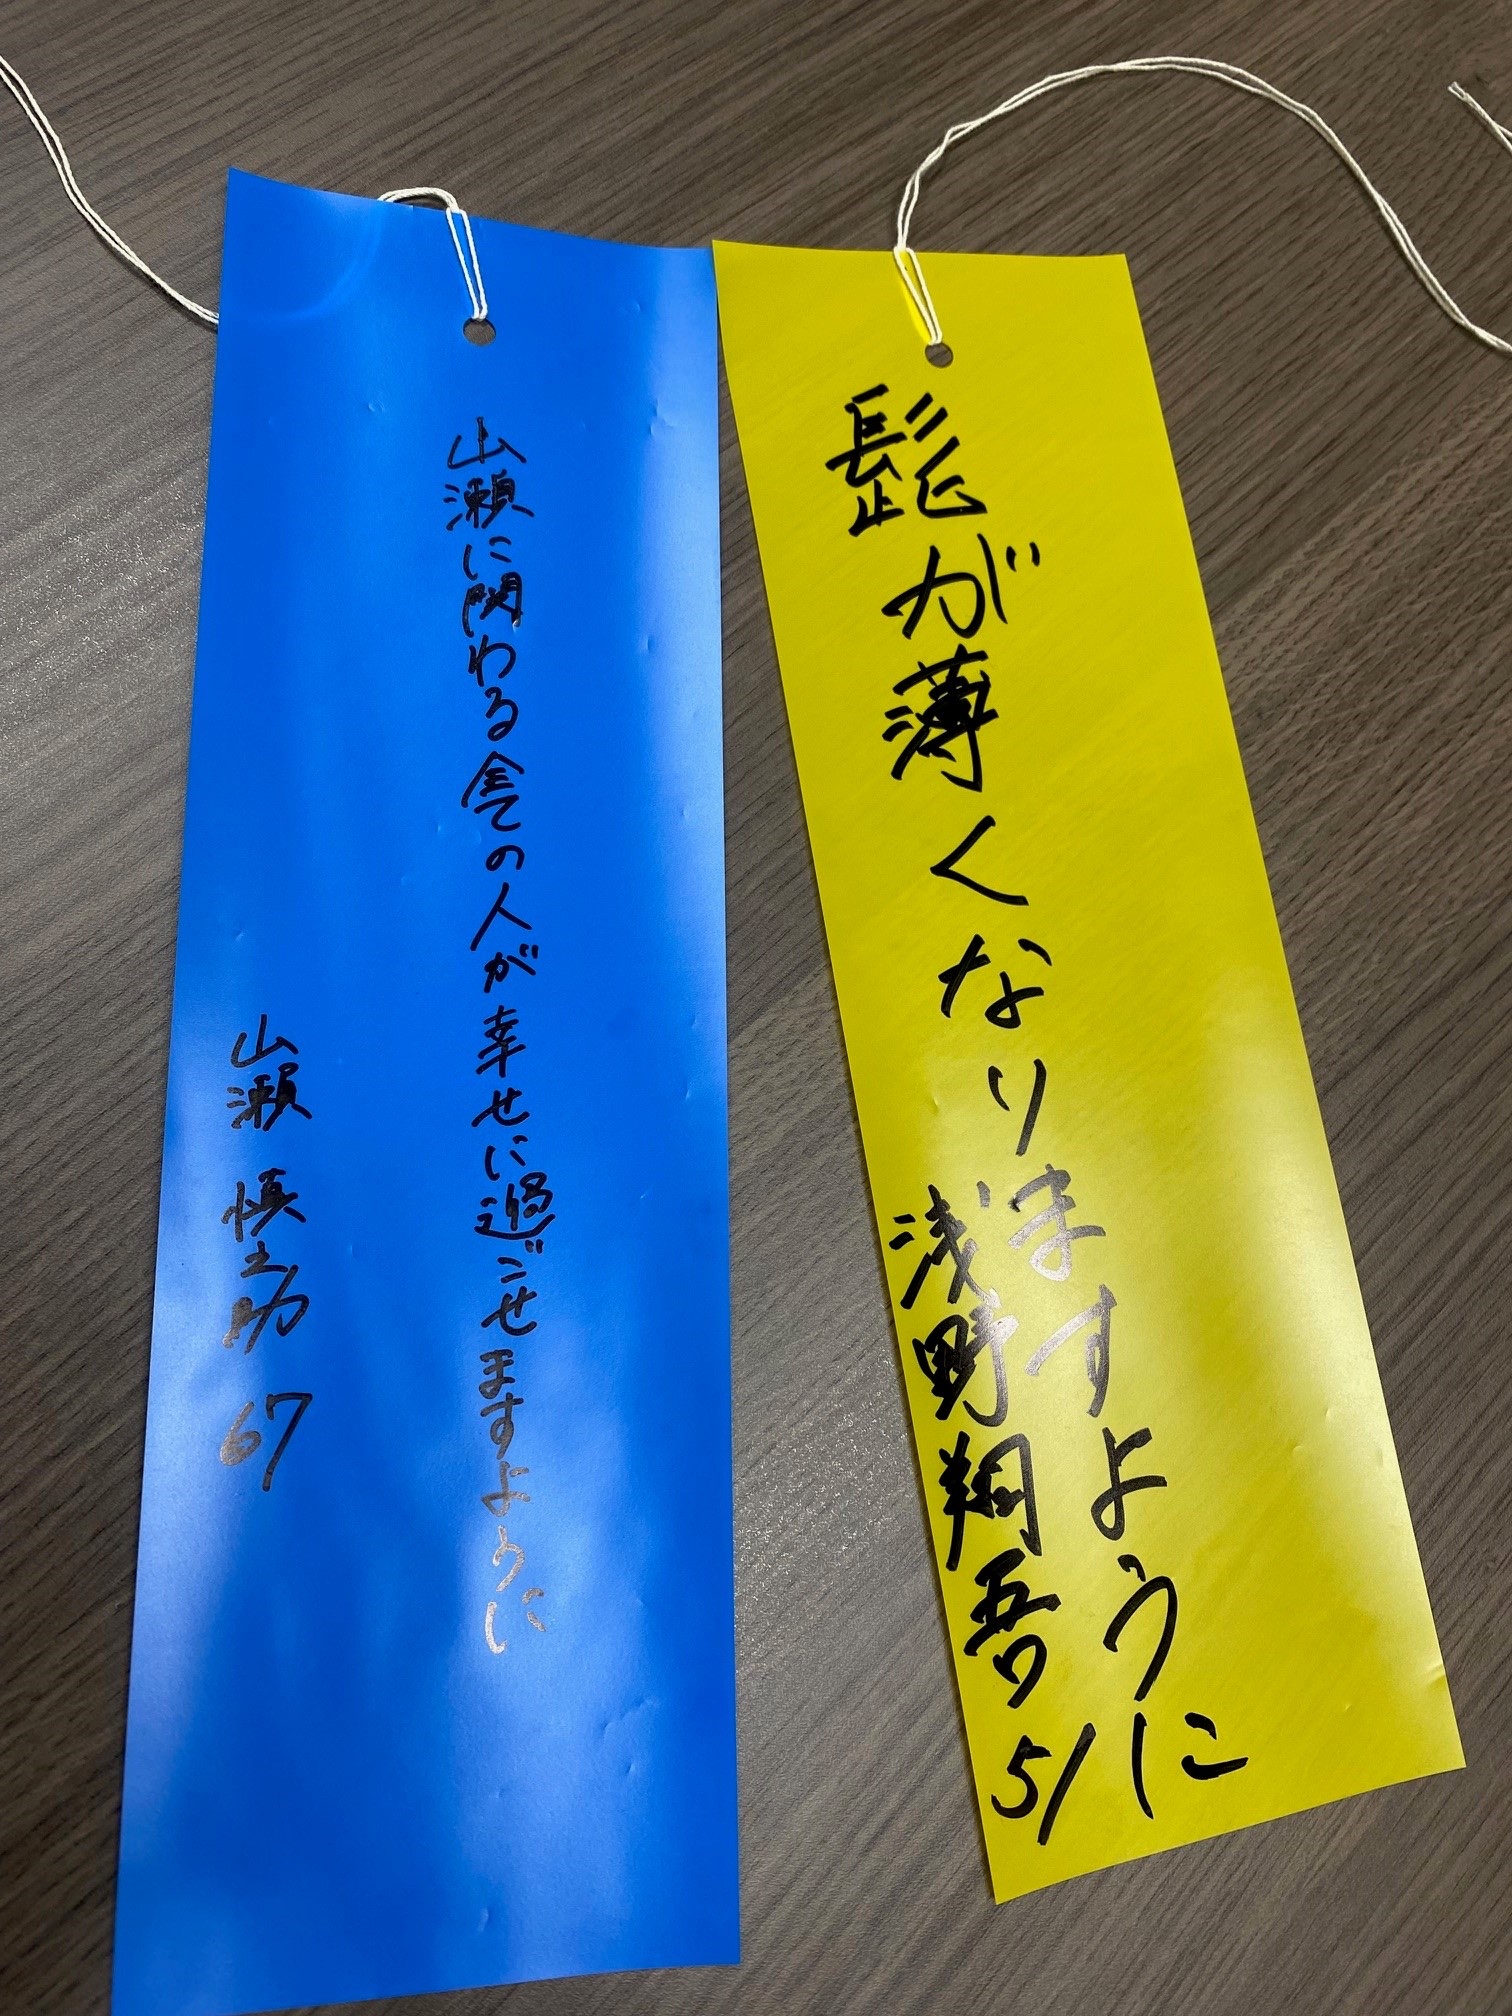 山瀬に関わる全ての人が幸せに過ごせますように
山瀬 慎之助 67
髭が薄くなりますように
浅野翔吾 51